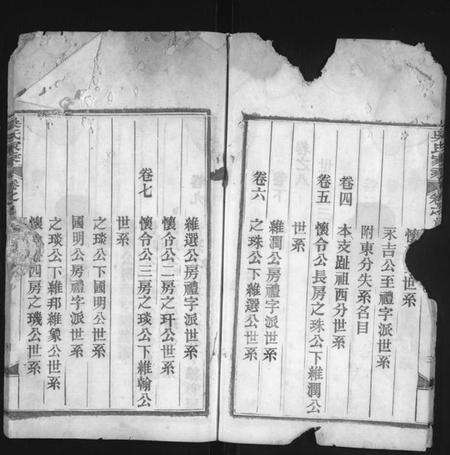 懷
世系
永吉公至禮字派世系
附東分失系名目
卷四
本支趾祖西分世系
卷五
懷令公長房之珠公下維潤公
世系
維潤公房禮字派世系
卷六
之珠公下維選公世系
維選公房禮字派世系
懷令公二房之玕公世系
卷七
懷令公三房之琰公下維翰公
世系
國明公房禮字派世系
之琰公下國明公世系
之琰公下維邦維象公世系
懷 四房之璣公世系